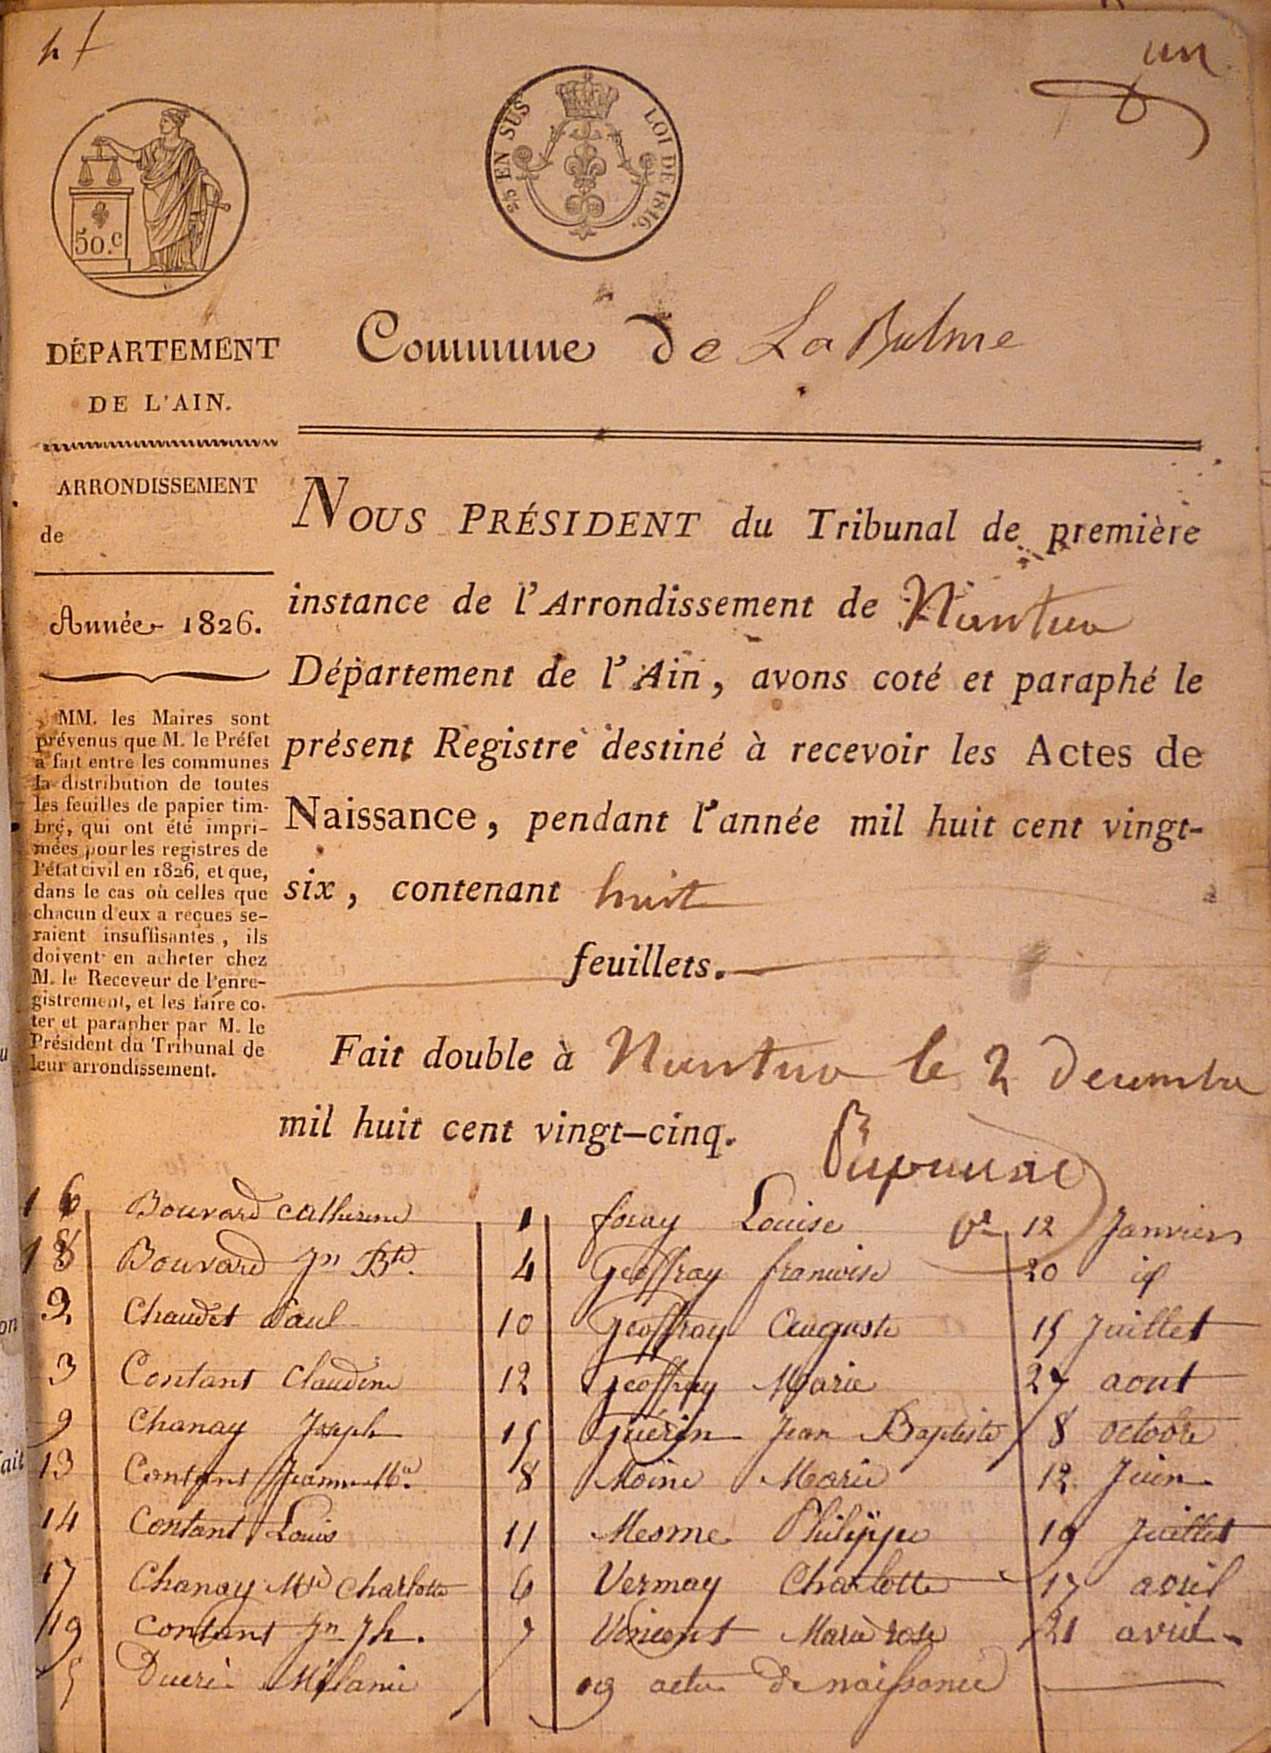 un
2/5 EN SUS LOI DE 1816.
50.c
DÉPARTEMENT
DE L'AIN.
Commune de La Balme
ARRONDISSEMENT
de
Année 1826.
MM. les Maires sont
prévenus que M. le Préfet
a fait entre les communes
la distribution de toutes
les feuilles de papier tim-
bré, qui ont été impri-
mées pour les registres de
l'état civil en 1826, et que,
dans le cas où celles que
chacun d'eux a reçues se-
raient insuffisantes, ils
doivent en acheter chez
M. le Receveur de l'enre-
gistrement, et les faire co-
ter et parapher par M. le
Président du Tribunal de
leur arrondissement.
NOUS PRÉSIDENT du Tribunal de première
instance de l'Arrondissement de Nantua
Département de l'Ain, avons coté et paraphé le
présent Registre destiné à recevoir les Actes de
Naissance, pendant l'année mil huit cent vingt-
six, contenant huit
feuillets.
Fait double à Nantua le 2 Decembre
mil huit cent vingt-cinq.
16 Bouvard Catherine 1 foray Louise 12 Janviers
18 Bouvard Jn Bte. 4 Geoffray francoise 20 id
2 Chaudet Paul 10 Geoffray Auguste 15 Juillet
3 Contant Claudine 12 Geoffray Marie 27 aout
9 Chanay Joseph 15 Guérin Jean Baptiste 8 octobre
13 Contant Jeanne Mie. 8 Moine Marie 12 Juin
14 Contant Louis 11 Mesme Philippe 19 Juillet
17 Chanay Mie Charlotte 6 Vermay Charlotte 17 avril
19 Contant Jn Jh. 7 Vincent Marie rose 21 avril
5 Mélanie 19 actes de naissance